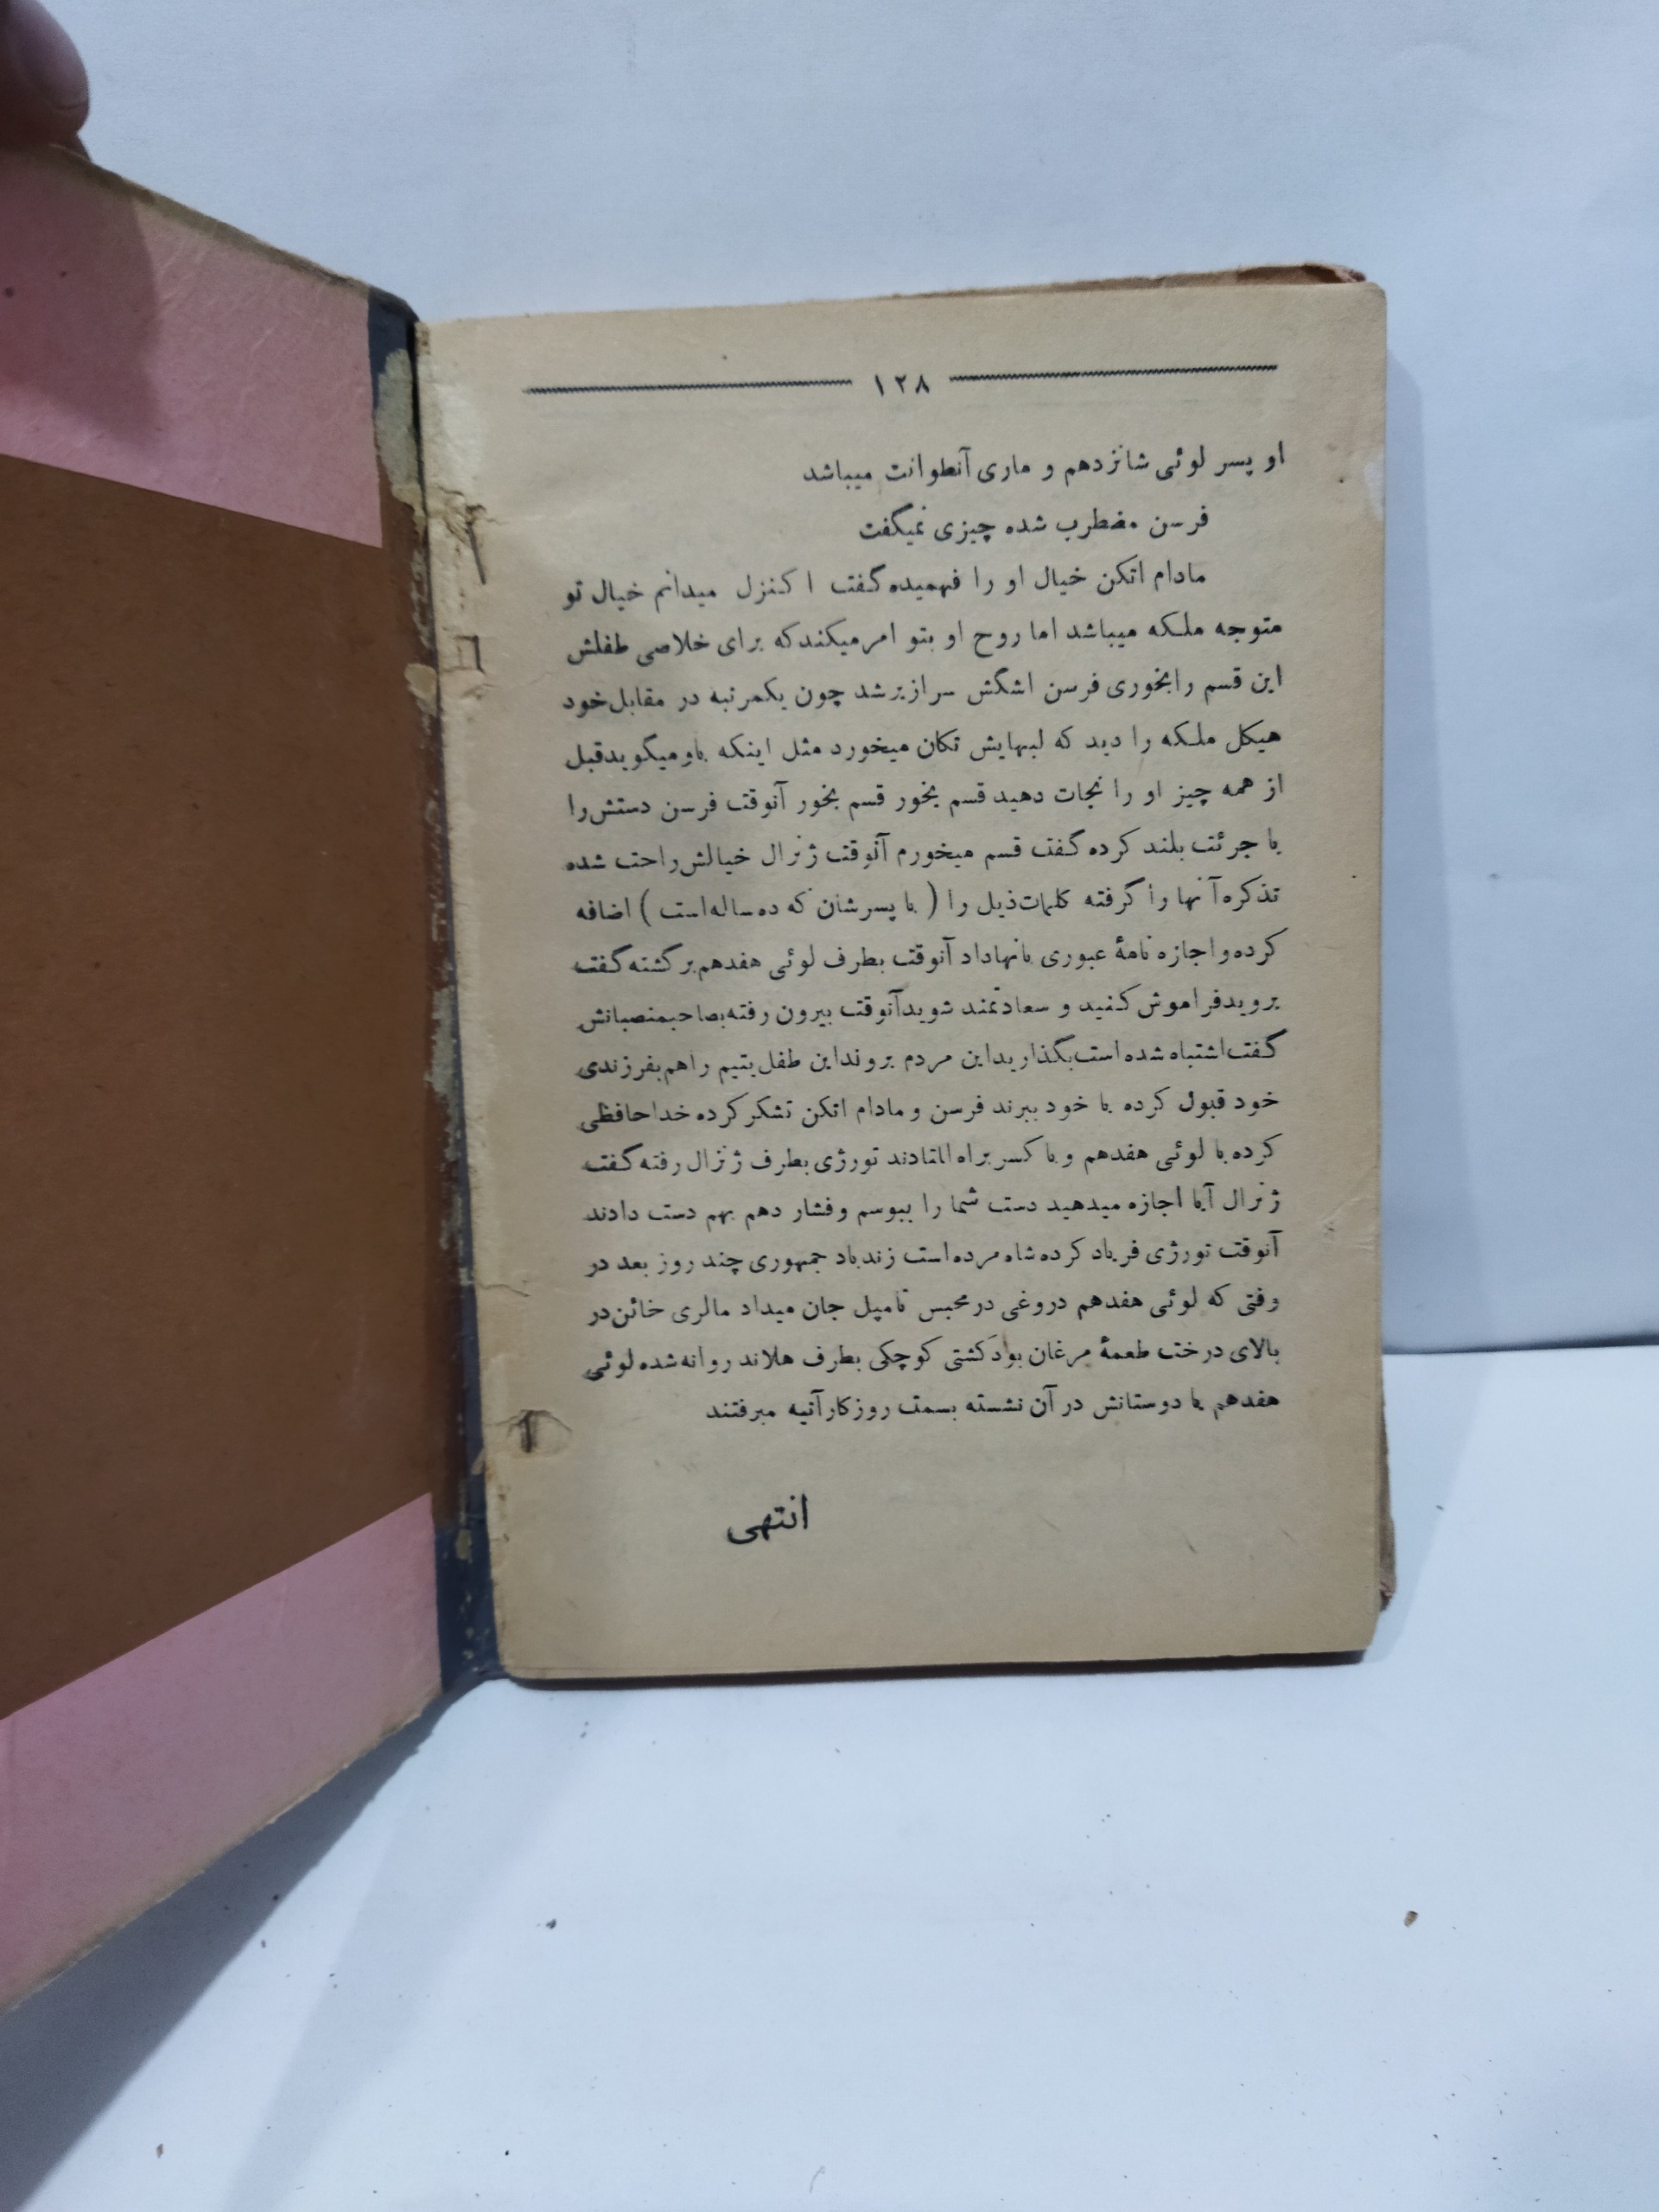 ۱۲۸
او پسر لوئی شانزدهم و ماری آنطوانت میباشد
فرسن مضطرب شده چیزی نمیگفت
مادام اتکن خیال او را فهمیده گفت اکنزل میدانم خیال تو
متوجه ملکه میباشد اما روح او بتو امر میکند که برای خلاصی طفلش
این قسم را بخوری فرسن اشگش سرازیر شد چون یکمرتبه در مقابل خود
هیکل ملکه را دید که لبهایش تکان میخورد مثل اینکه باو میگوید قبل
از همه چیز او را نجات دهید قسم بخور قسم بخور آنوقت فرسن دستش را
با جرئت بلند کرده گفت قسم میخورم آنوقت ژنرال خیالش راحت شده
تذکره آنها را گرفته کلمات ذیل را ( با پسرشان که ده ساله است ) اضافه
کرده و اجازه نامهٔ عبوری بانها داد آنوقت بطرف لوئی هفدهم برگشته گفت
بروید فراموش کنید و سعادتمند شوید آنوقت بیرون رفته بصاحبمنصبانش
گفت اشتباه شده است بگذارید این مردم بروند این طفل یتیم را هم بفرزندی
خود قبول کرده با خود ببرند فرسن و مادام اتکن تشکر کرده خدا حافظی
کرده با لوئی هفدهم و با کسر براه افتادند تورژی بطرف ژنرال رفته گفت
ژنرال آیا اجازه میدهید دست شما را ببوسم و فشار دهم بهم دست دادند
آنوقت تورژی فریاد کرده شاه مرده است زنده باد جمهوری چند روز بعد در
وقتی که لوئی هفدهم دروغی در محبس تامپل جان میداد مالری خائن در
بالای درخت طعمهٔ مرغان بود کشتی کوچکی بطرف هلاند روانه شده لوئی
هفدهم با دوستانش در آن نشسته بسمت روزکار آتیه میرفتند
انتهی